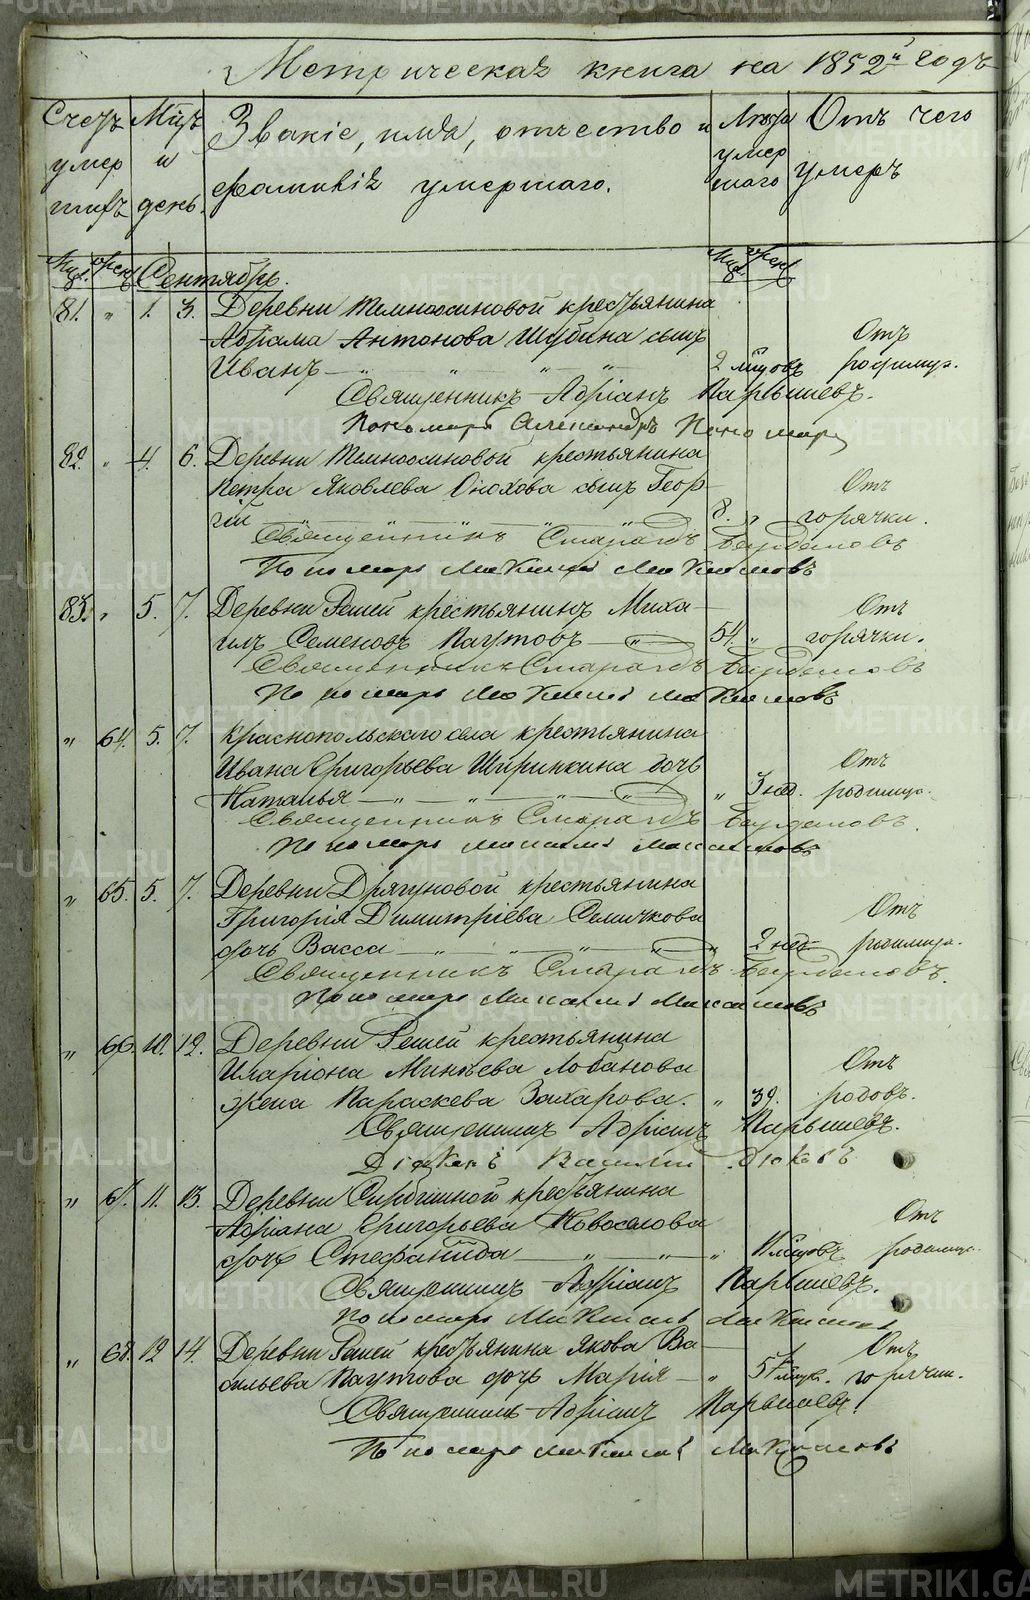 Метрическая книга на 1852й годъ
Счетъ умершихъ
Мцъ и день.
Званіе, имя, отчество и фамилія умершаго.
Лета умершаго
Отъ чего умеръ
Муж. женс. Сентябрь. Муж. женс.
81. " 1. 3. Деревни Темноосиновой крестьянина
Абрама Антонова Шубина сынъ Отъ
Иванъ — " " " 2 мцовъ родимца.
Священникъ Адріанъ Парышевъ.
Пономарь Александръ Пономарев
82. " 4. 6. Деревни Темноосиновой крестьянина
Петра Яковлева Онохова сынъ Геор- Отъ
гій " " " " 8. " горячки.
Священникъ Смарагдъ Бирюковъ
Пономарь Максимовъ
83. " 5. 7. Деревни Решей крестьянинъ Миха- Отъ
илъ Семеновъ Паутовъ — " 54. " горячки.
Священникъ Смарагдъ
Пономарь Максимовъ
" 64. 5. 7. Краснопольскаго села крестьянина
Ивана Григорьева Ширинкина дочь Отъ
Наталья — " — " — " — " " 3 нед. родимца.
Священникъ Смарагдъ
Пономарь Максимовъ
" 65. 5. 7. Деревни Дрягуновой крестьянина
Григорія Димитріева Семячкова Отъ
дочь Васса — " " " " " 2 нед. родимца.
Священникъ Смарагдъ
Пономарь Максимовъ
" 66. 10. 12. Деревни Решей крестьянина
Иларіона Минѣева Лобанова Отъ
жена Параскева Захарова. " 39. родовъ.
Священникъ Адріанъ Парышевъ.
Діаконъ Василій
" 67. 11. 13. Деревни крестьянина
Адріана Григорьева Новоселова Отъ
дочь Стефанида — " — " — " мцовъ родимца.
Священникъ Адріанъ Парышевъ.
Пономарь Максимовъ
" 68. 12 14. Деревни Решей крестьянина Якова Ва- Отъ
сильева Паутова дочь Марія — " 5 горячки.
Священникъ Адріанъ Парышевъ.
Пономарь Максимовъ
METRIKI.GASO-URAL.RU